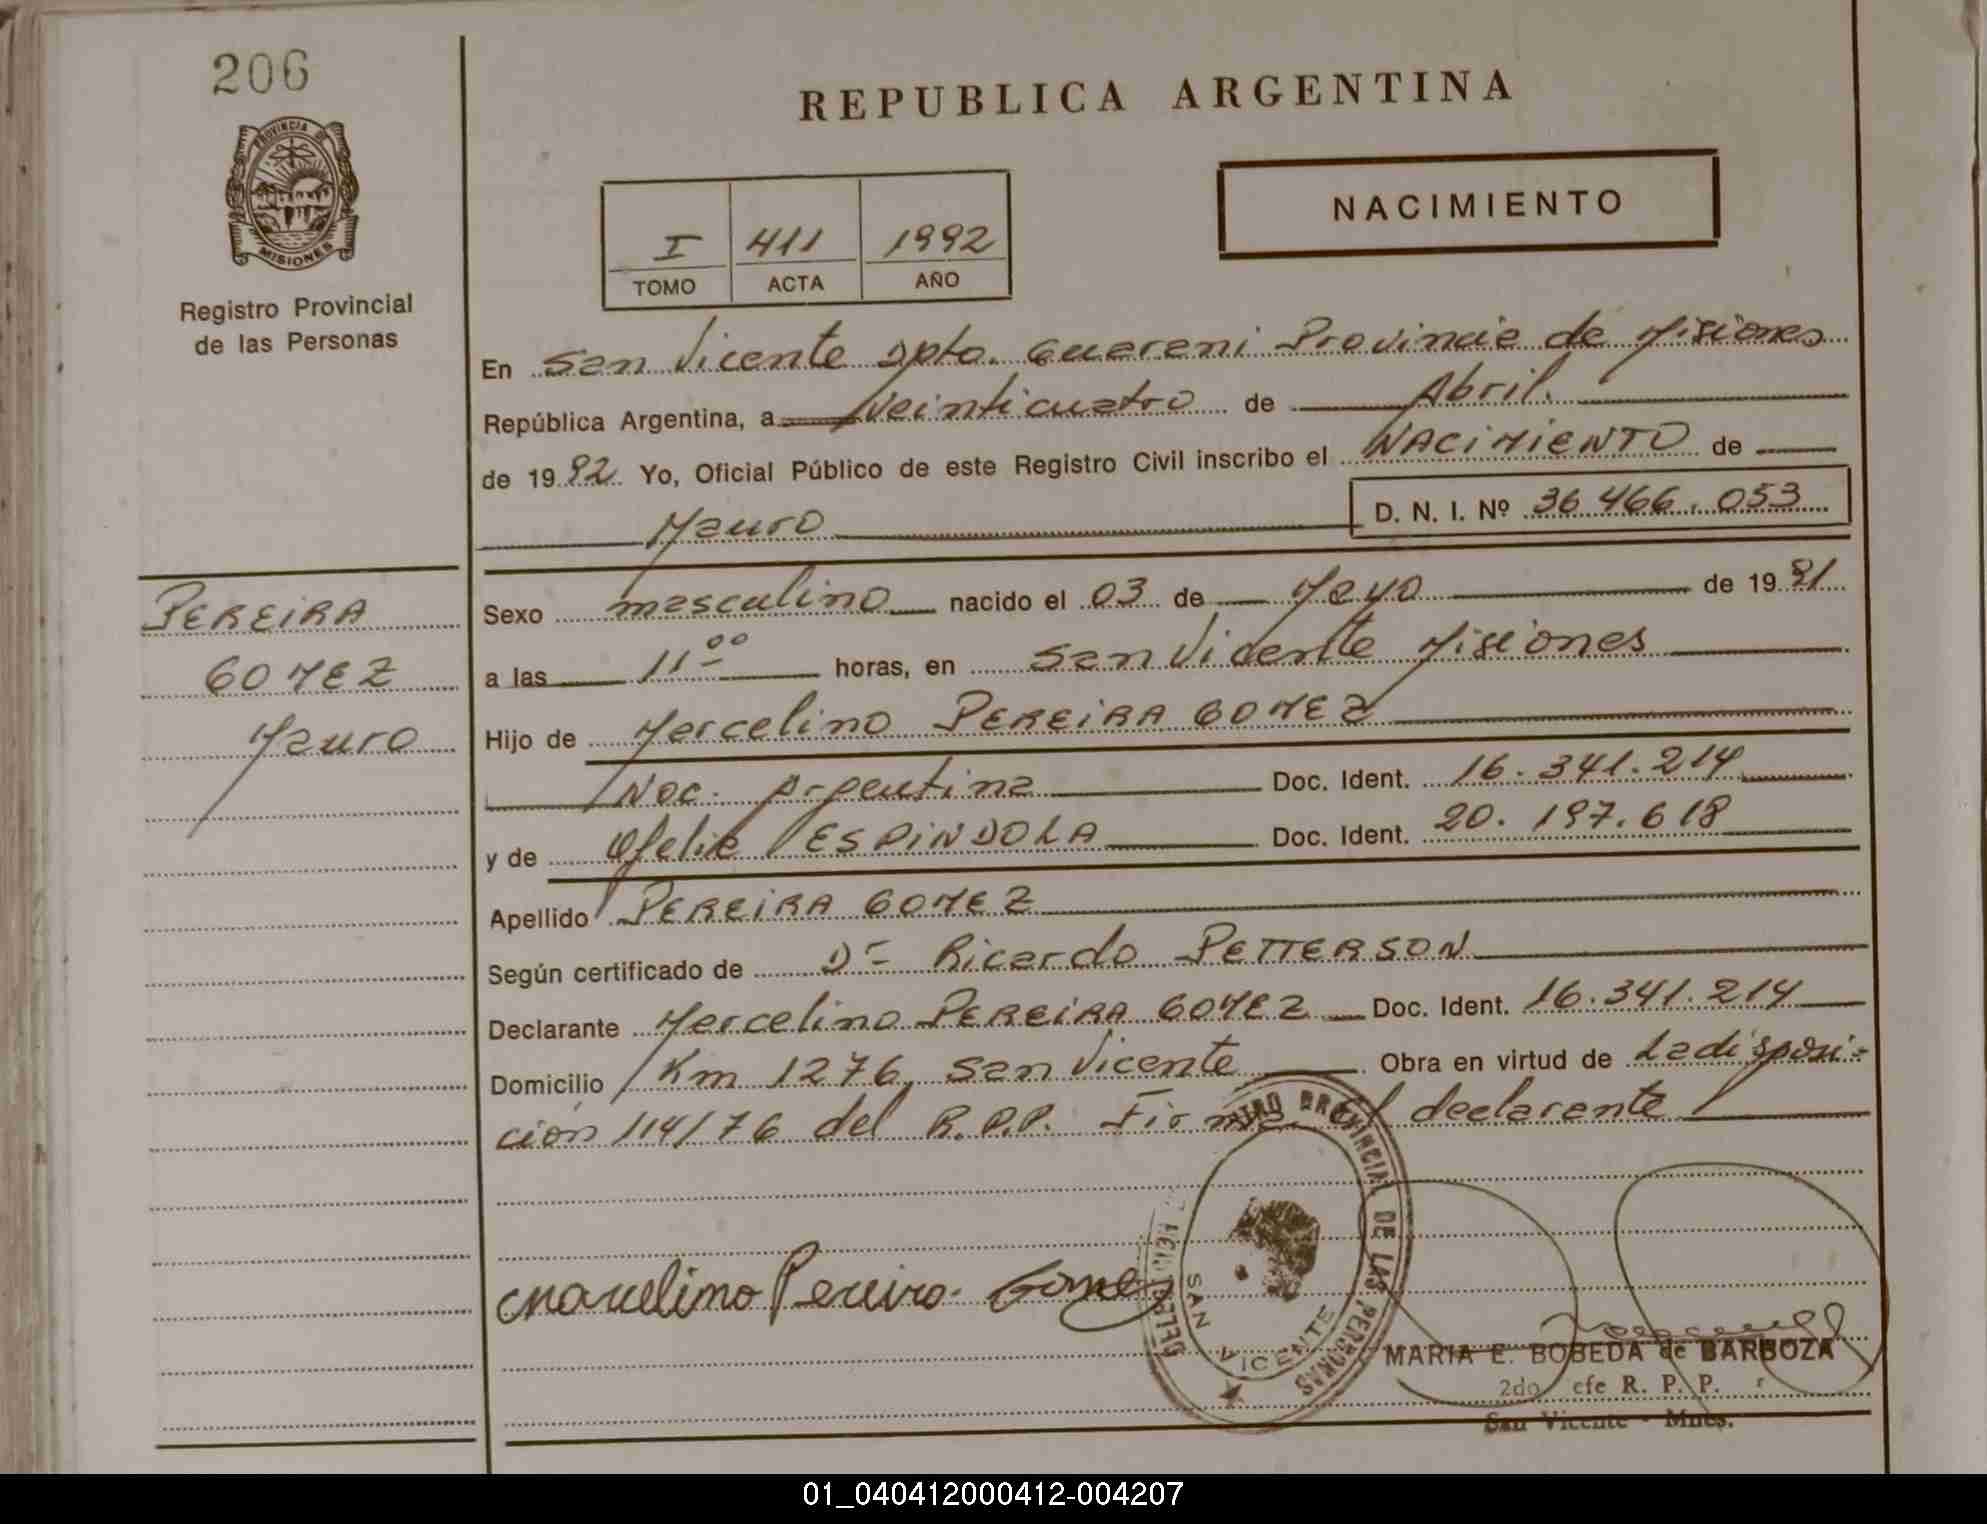 206
REPUBLICA ARGENTINA
PROVINCIA DE
MISIONES
Registro Provincial
de las Personas
NACIMIENTO
I 411 1992
TOMO ACTA AÑO
En San Vicente Dpto. Guarani Provincia de Misiones
República Argentina, a veinticuatro de Abril.
de 1992 Yo, Oficial Público de este Registro Civil inscribo el NACIMIENTO de
Mauro D. N. I. Nº 36 466.053
PEREIRA
GOMEZ
Mauro
Sexo masculino nacido el 03 de Mayo de 1991
a las 11 00 horas, en San Vicente Misiones
Hijo de Marcelino PEREIRA GOMEZ
Nac. Argentina Doc. Ident. 16.341.214
y de Ofelia ESPINDOLA Doc. Ident. 20.197.618
Apellido PEREIRA GOMEZ
Según certificado de Dr Ricardo PETTERSON
Declarante Marcelino PEREIRA GOMEZ Doc. Ident. 16.341.214
Domicilio Km 1276, San Vicente Obra en virtud de La disposi-
ción 114/76 del R.P.P. Firma el declarante
Marcelino Pereira Gomez
PROVINCIAL DE LAS PERSONAS
SAN VICENTE
MARIA E. BOBEDA de BARBOZA
2do efe R. P. P.
San Vicente - Mnes.
01_040412000412-004207